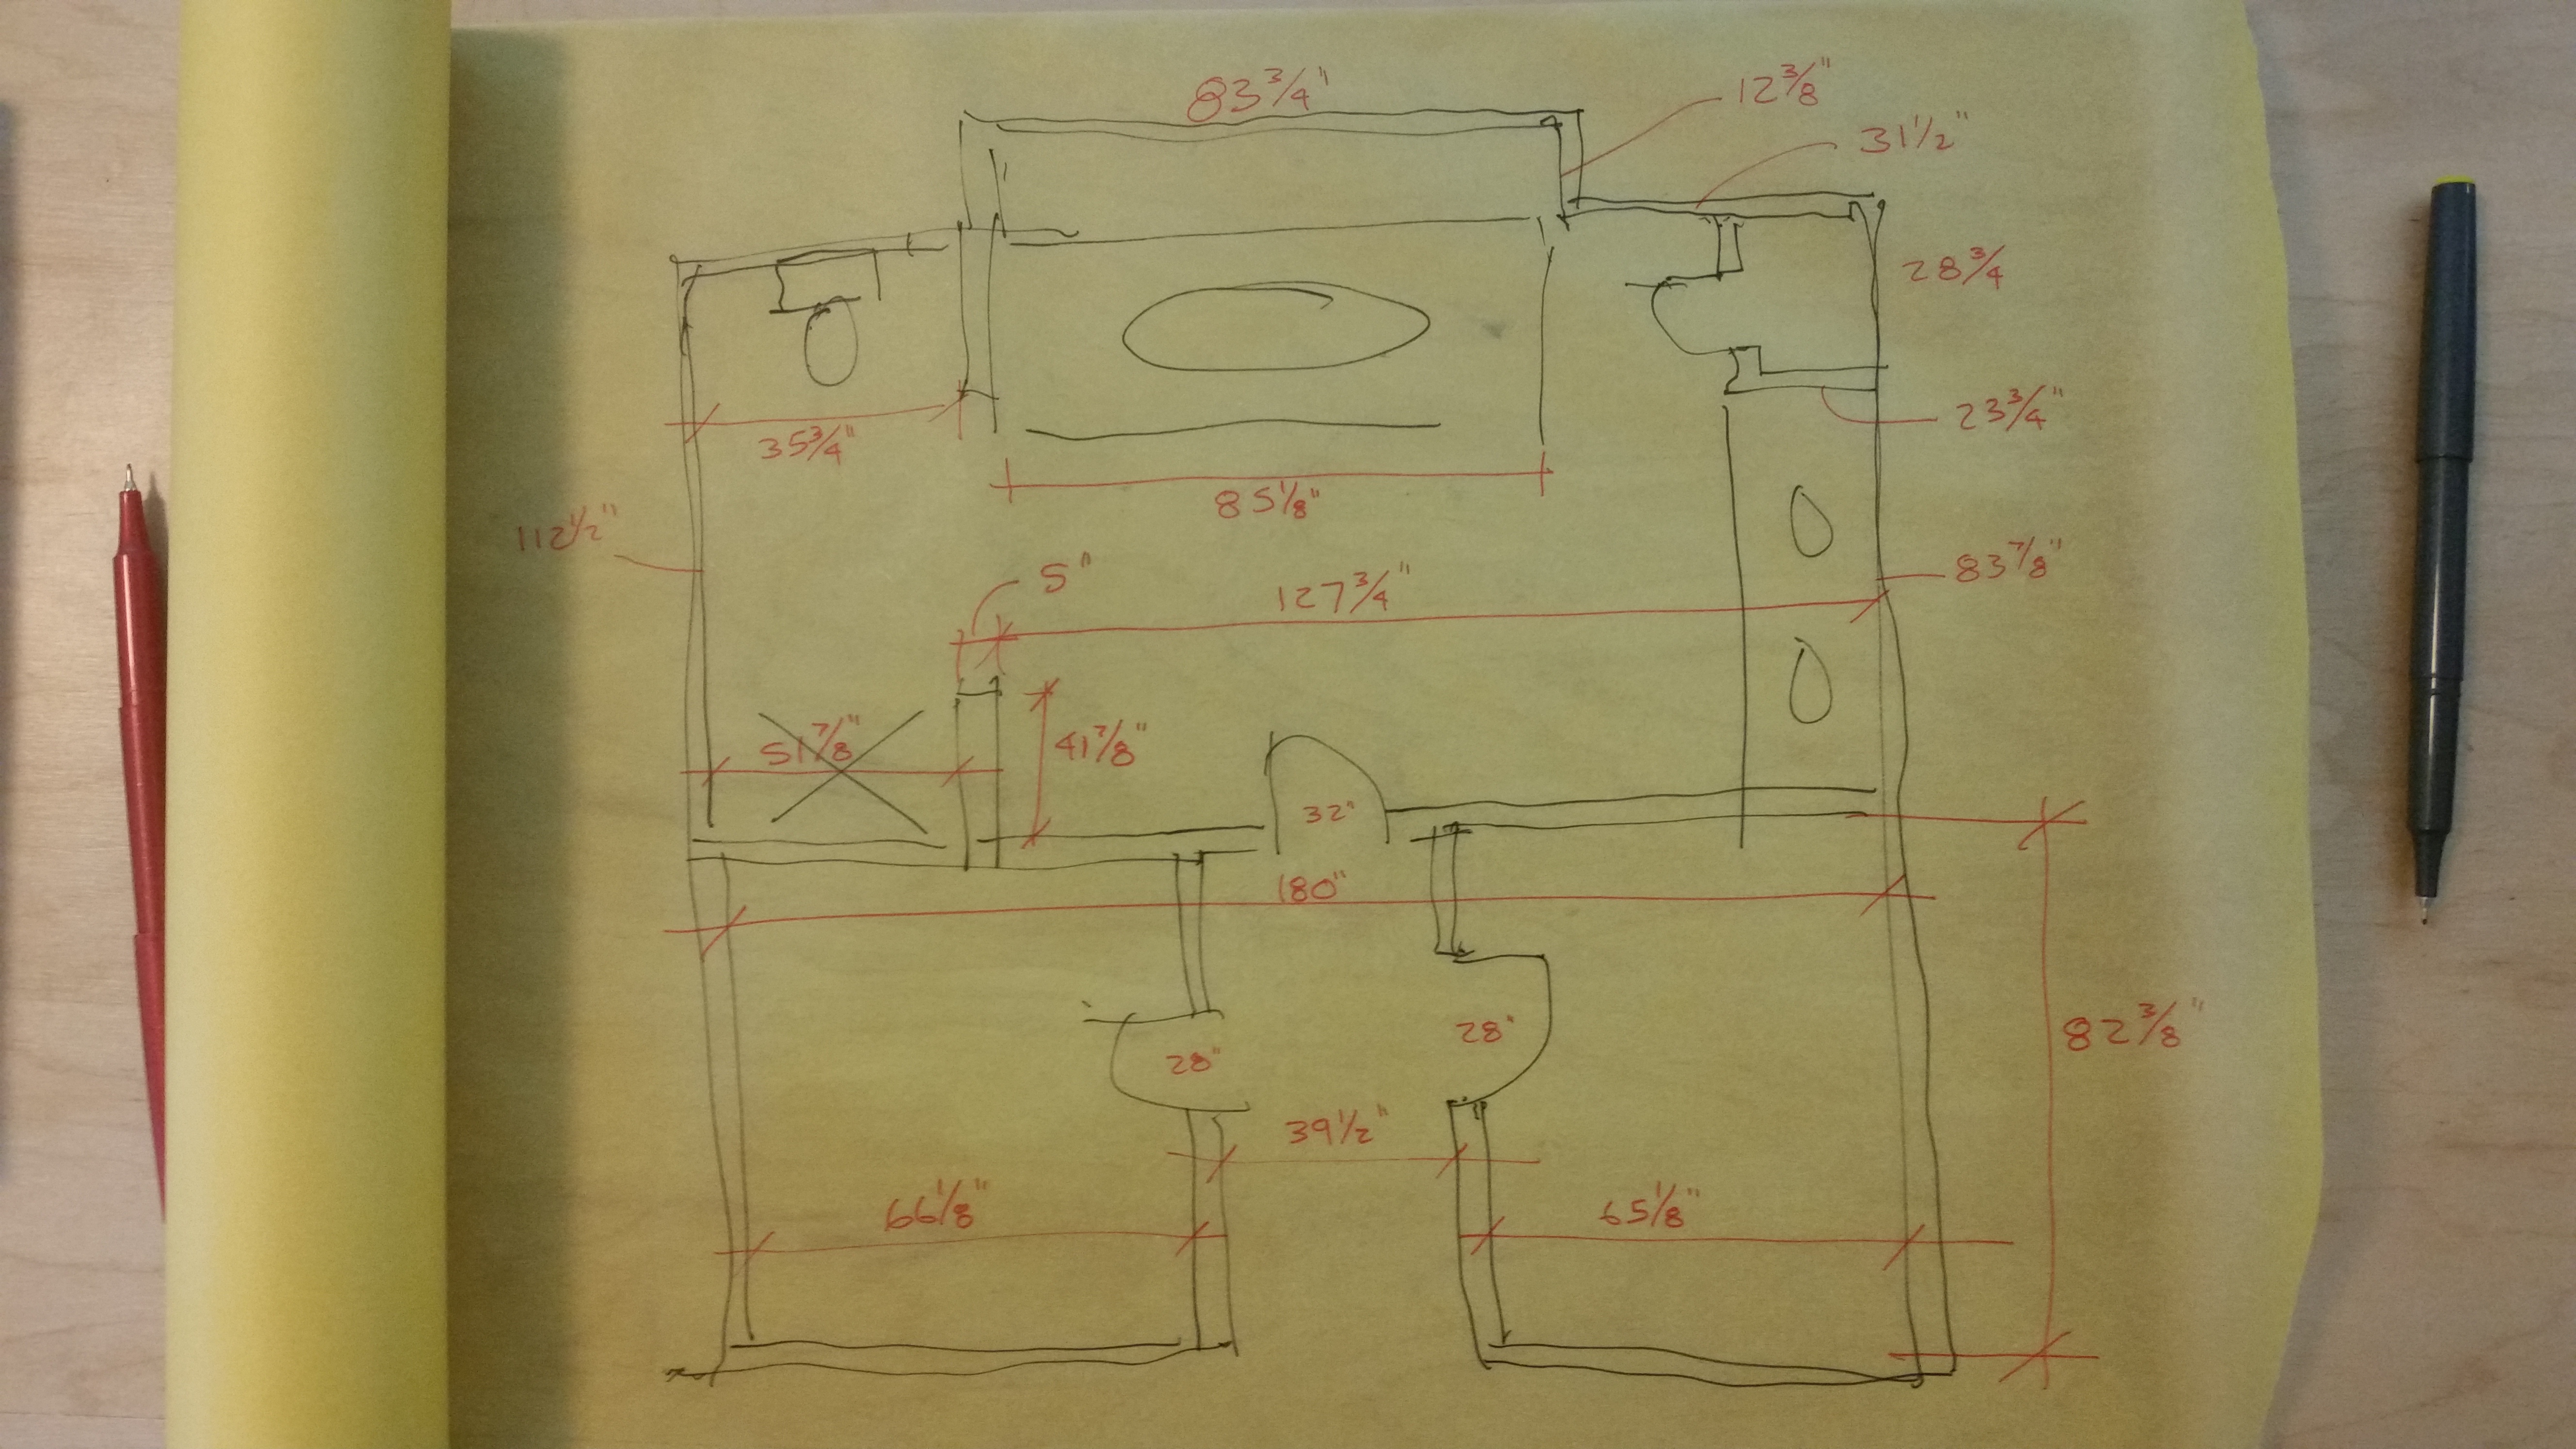 83 3/4"
12 3/8"
31 1/2"
28 3/4
35 3/4"
23 3/4"
85 1/8"
112 1/2"
5"
127 3/4"
83 7/8"
51 7/8"
41 7/8"
32"
180"
28"
28"
82 3/8"
39 1/2"
66 1/8"
65 1/8"